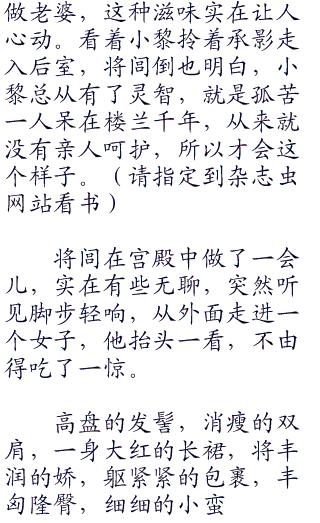 做老婆，这种滋味实在让人
心动。看着小黎拎着承影走
入后室，将闾倒也明白，小
黎总从有了灵智，就是孤苦
一人呆在楼兰千年，从来就
没有亲人呵护，所以才会这
个样子。（请指定到杂志虫
网站看书）
将闾在宫殿中做了一会
儿，实在有些无聊，突然听
见脚步轻响，从外面走进一
个女子，他抬头一看，不由
得吃了一惊。
高盘的发髻，消瘦的双
肩，一身大红的长裙，将丰
润的娇，躯紧紧的包裹，丰
匈隆臀，细细的小蛮